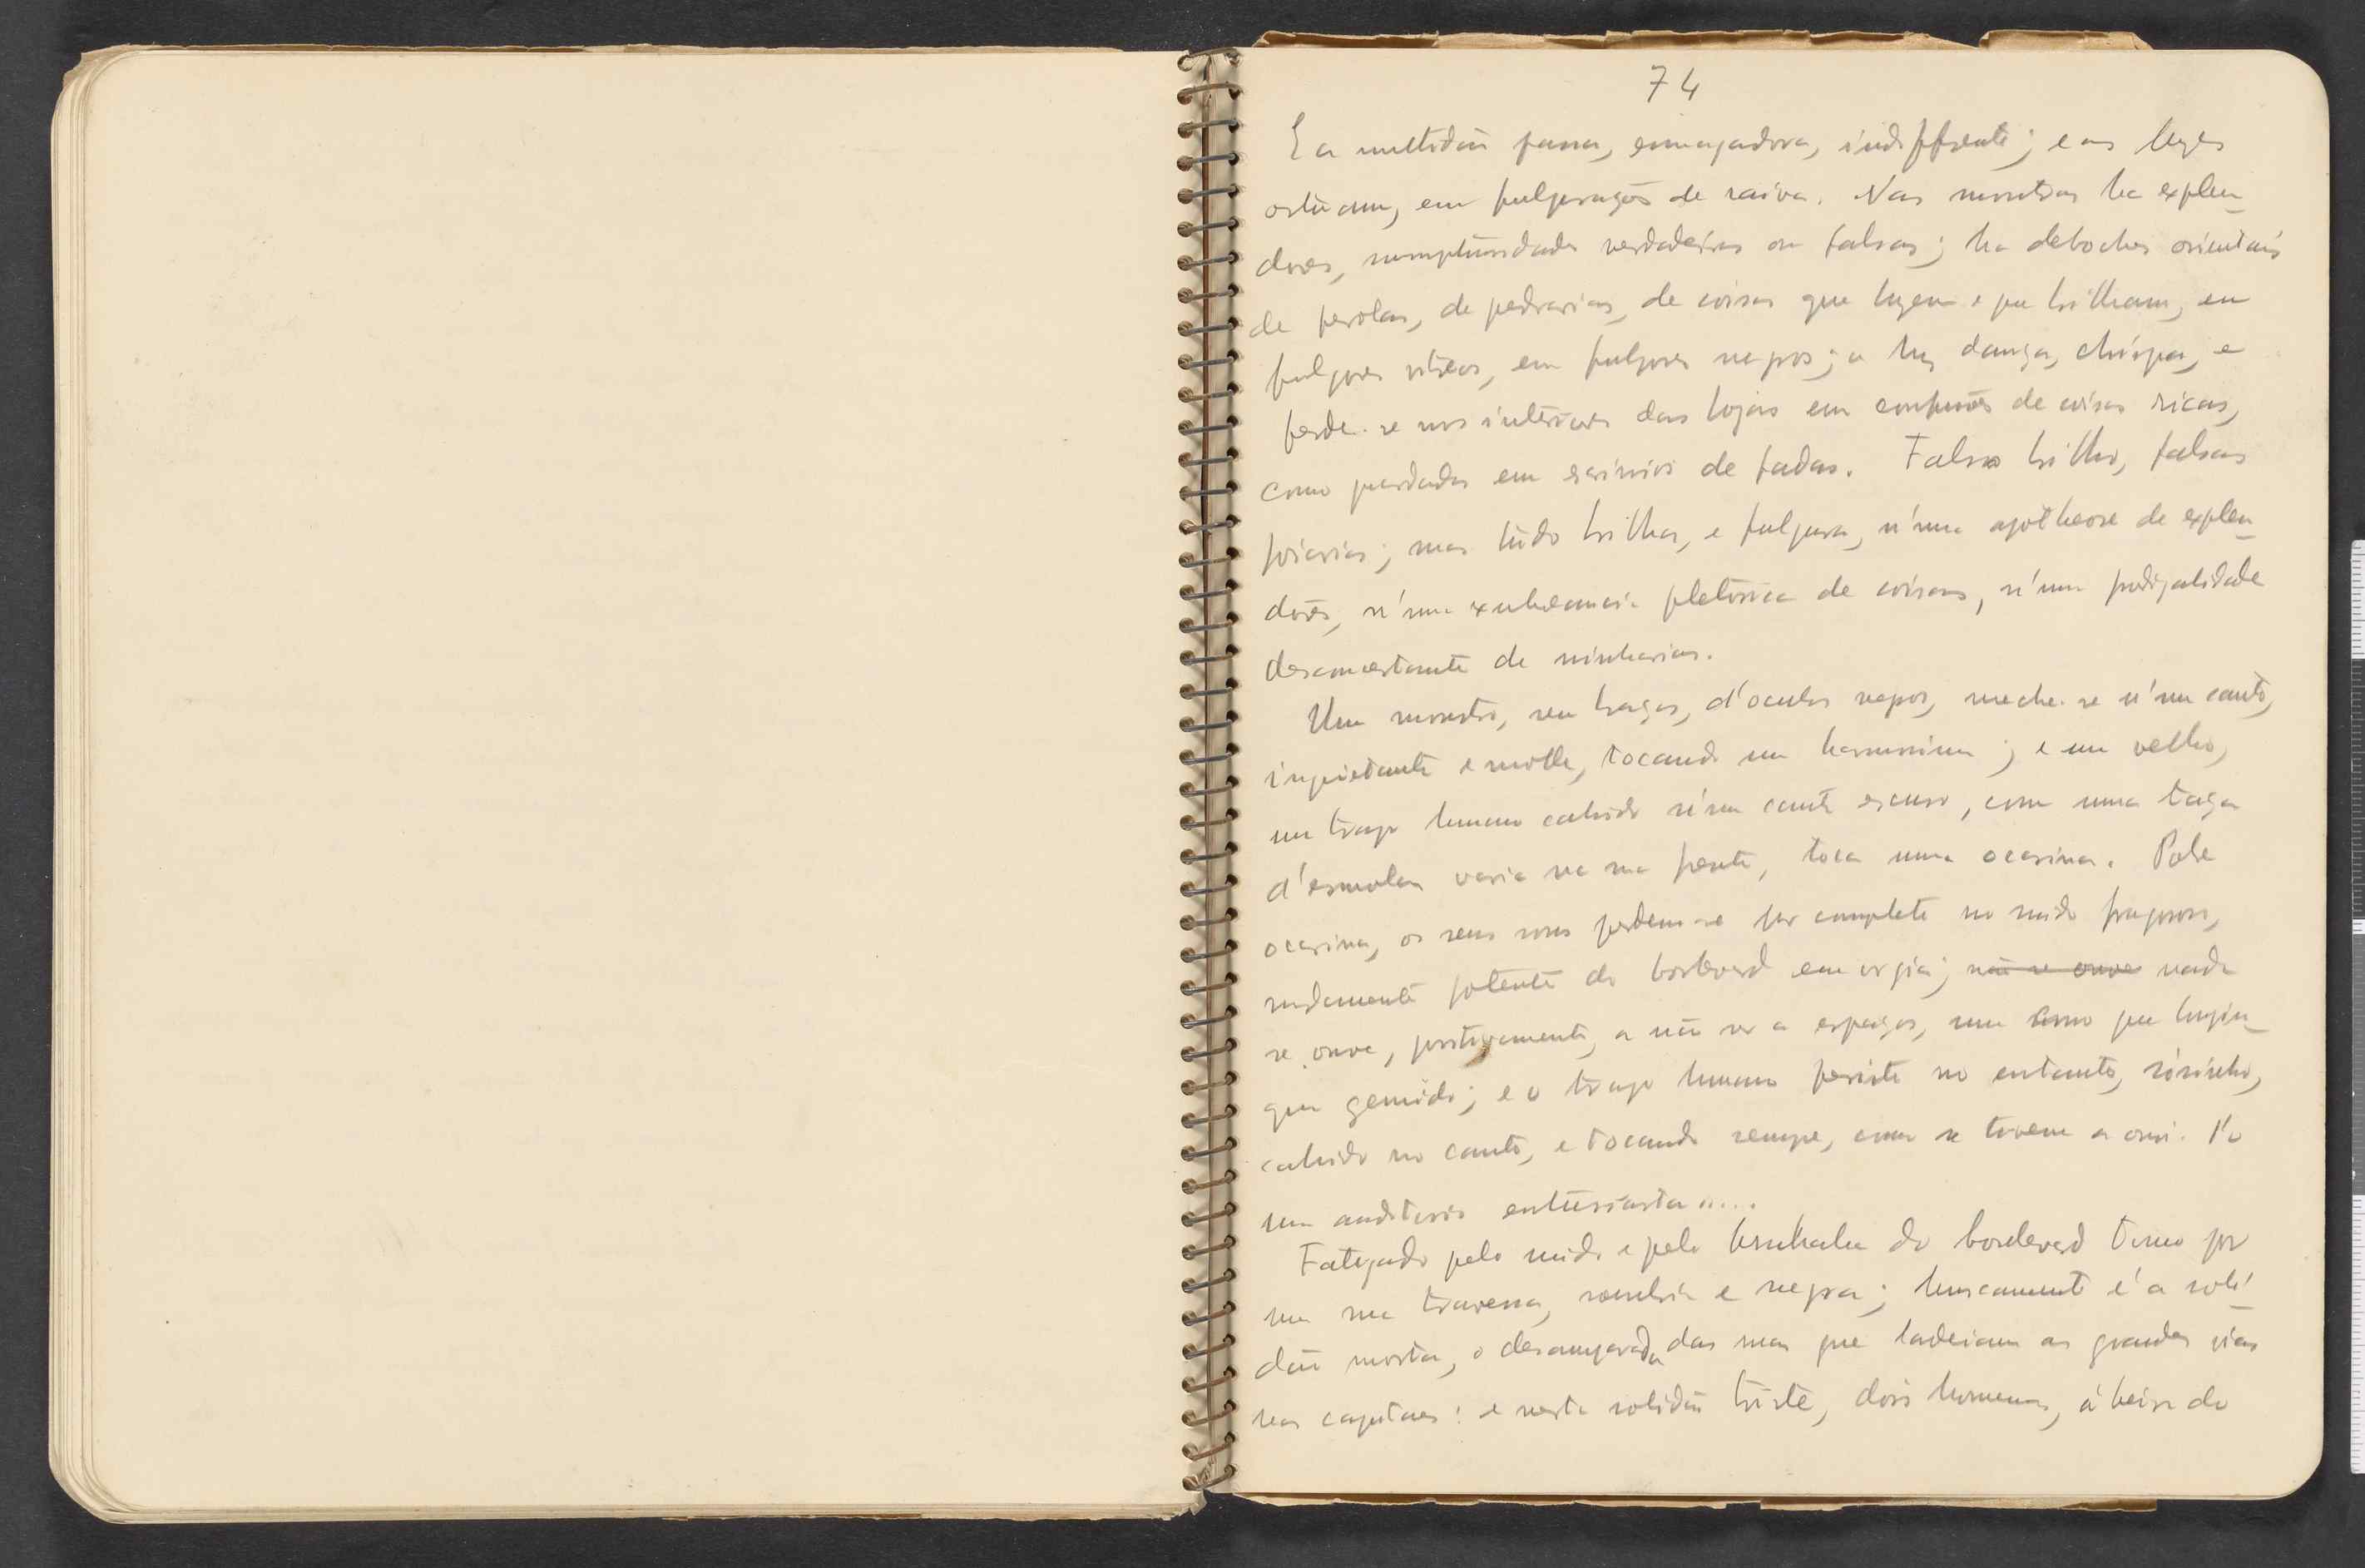 74
E a multidão passa, esmagadora, indifferente; e as luzes
estuam, em fulgurações de raiva. Nas montras ha explen_
dores, sumptuosidades verdadeiras ou falsas; ha deboches orientais
de perolas, de pedrarias, de coisas que luzem e que brilham, em
fulgores vitreos, em fulgores negros; a luz dança, chispa, e
perde-se nos interiores das lojas em confusões de coisas ricas,
como guardadas em escrinios de fadas. Falso brilho, falsas
joiarias; mas tudo brilha, e fulgura, n'uma apotheose de explen_
dores, n'uma exuberancia pletorica de coisas, n'uma prodigalidade
desconcertante de ninharias.
Um monstro, sem braços, d'oculos negros, meche-se n'um canto,
inquietante e molle, tocando um harmonium; e um velho,
um trapo humano cahido n'um canto escuro, com uma taça
d'esmolas vasia na sua frente, toca uma ocarina. Pobre
ocarina, os seus sons perdem-se por completo no ruido fragoroso,
rudemente potente do boulevard em orgia; não se ouve nada
se ouve, positivamente, a não ser a espaços, um como que longin_
quo gemido; e o trapo humano persiste no entanto, sósinho,
cahido no canto, e tocando sempre, como se tivesse a ouvi-l'o
um auditorio entusiasta.....
Fatigado pelo ruido e pelo brouhaha do boulevard tomo por
uma rua travessa, sombria e negra; bruscamente é a soli_
dão morta, e desamparada das ruas que ladeiam as grandes vias
nas capitaes: e nesta solidão triste, dois homens, á beira do